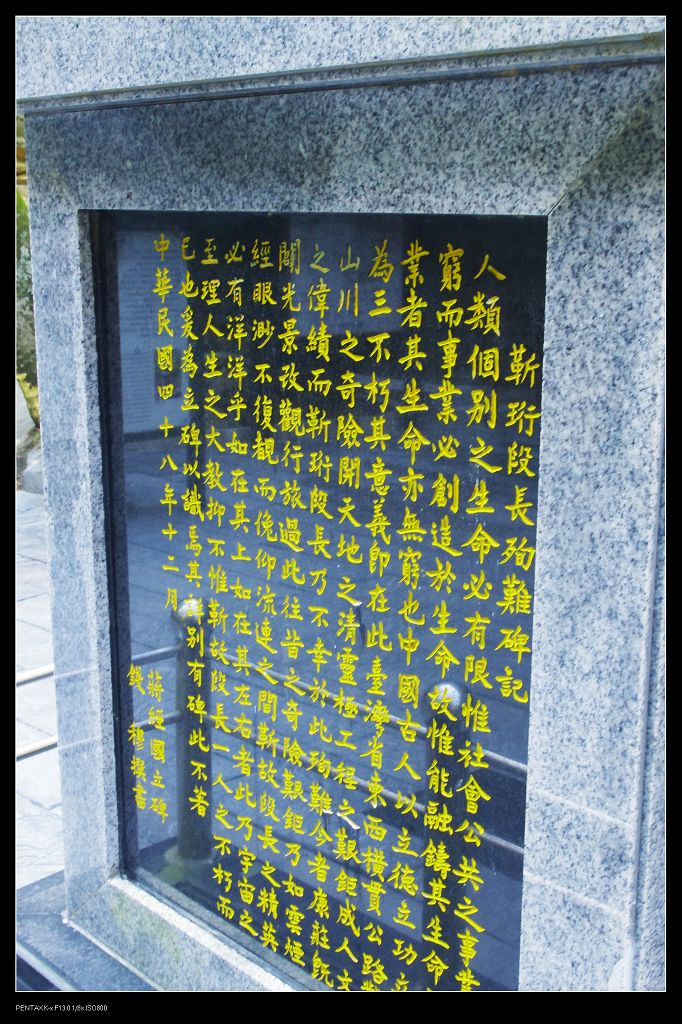 靳珩段長殉難碑記
人類個別之生命必有限惟社會公共之事業
窮而事業必創造於生命故惟能融鑄其生命
業者其生命亦無窮也中國古人以立德立功立
為三不朽其意義即在此臺灣省東西橫貫公路
山川之奇險開天地之清靈極工程之艱鉅成人文
之偉績而靳珩段長乃不幸於此殉難今者康莊既
闢光景改觀行旅過此往昔之奇險艱鉅乃如雲煙
經眼渺不復覩而俛仰流連之間靳故段長之精英
必有洋洋乎如在其上如在其左右者此乃宇宙之
至理人生之大教抑不惟靳故段長一人之不朽而
已也爰為立碑以識焉其詳別有碑此不著
中華民國四十八年十二月
蔣經國立碑
錢穆撰書
PENTAX K-x F13.0 1/6s ISO800